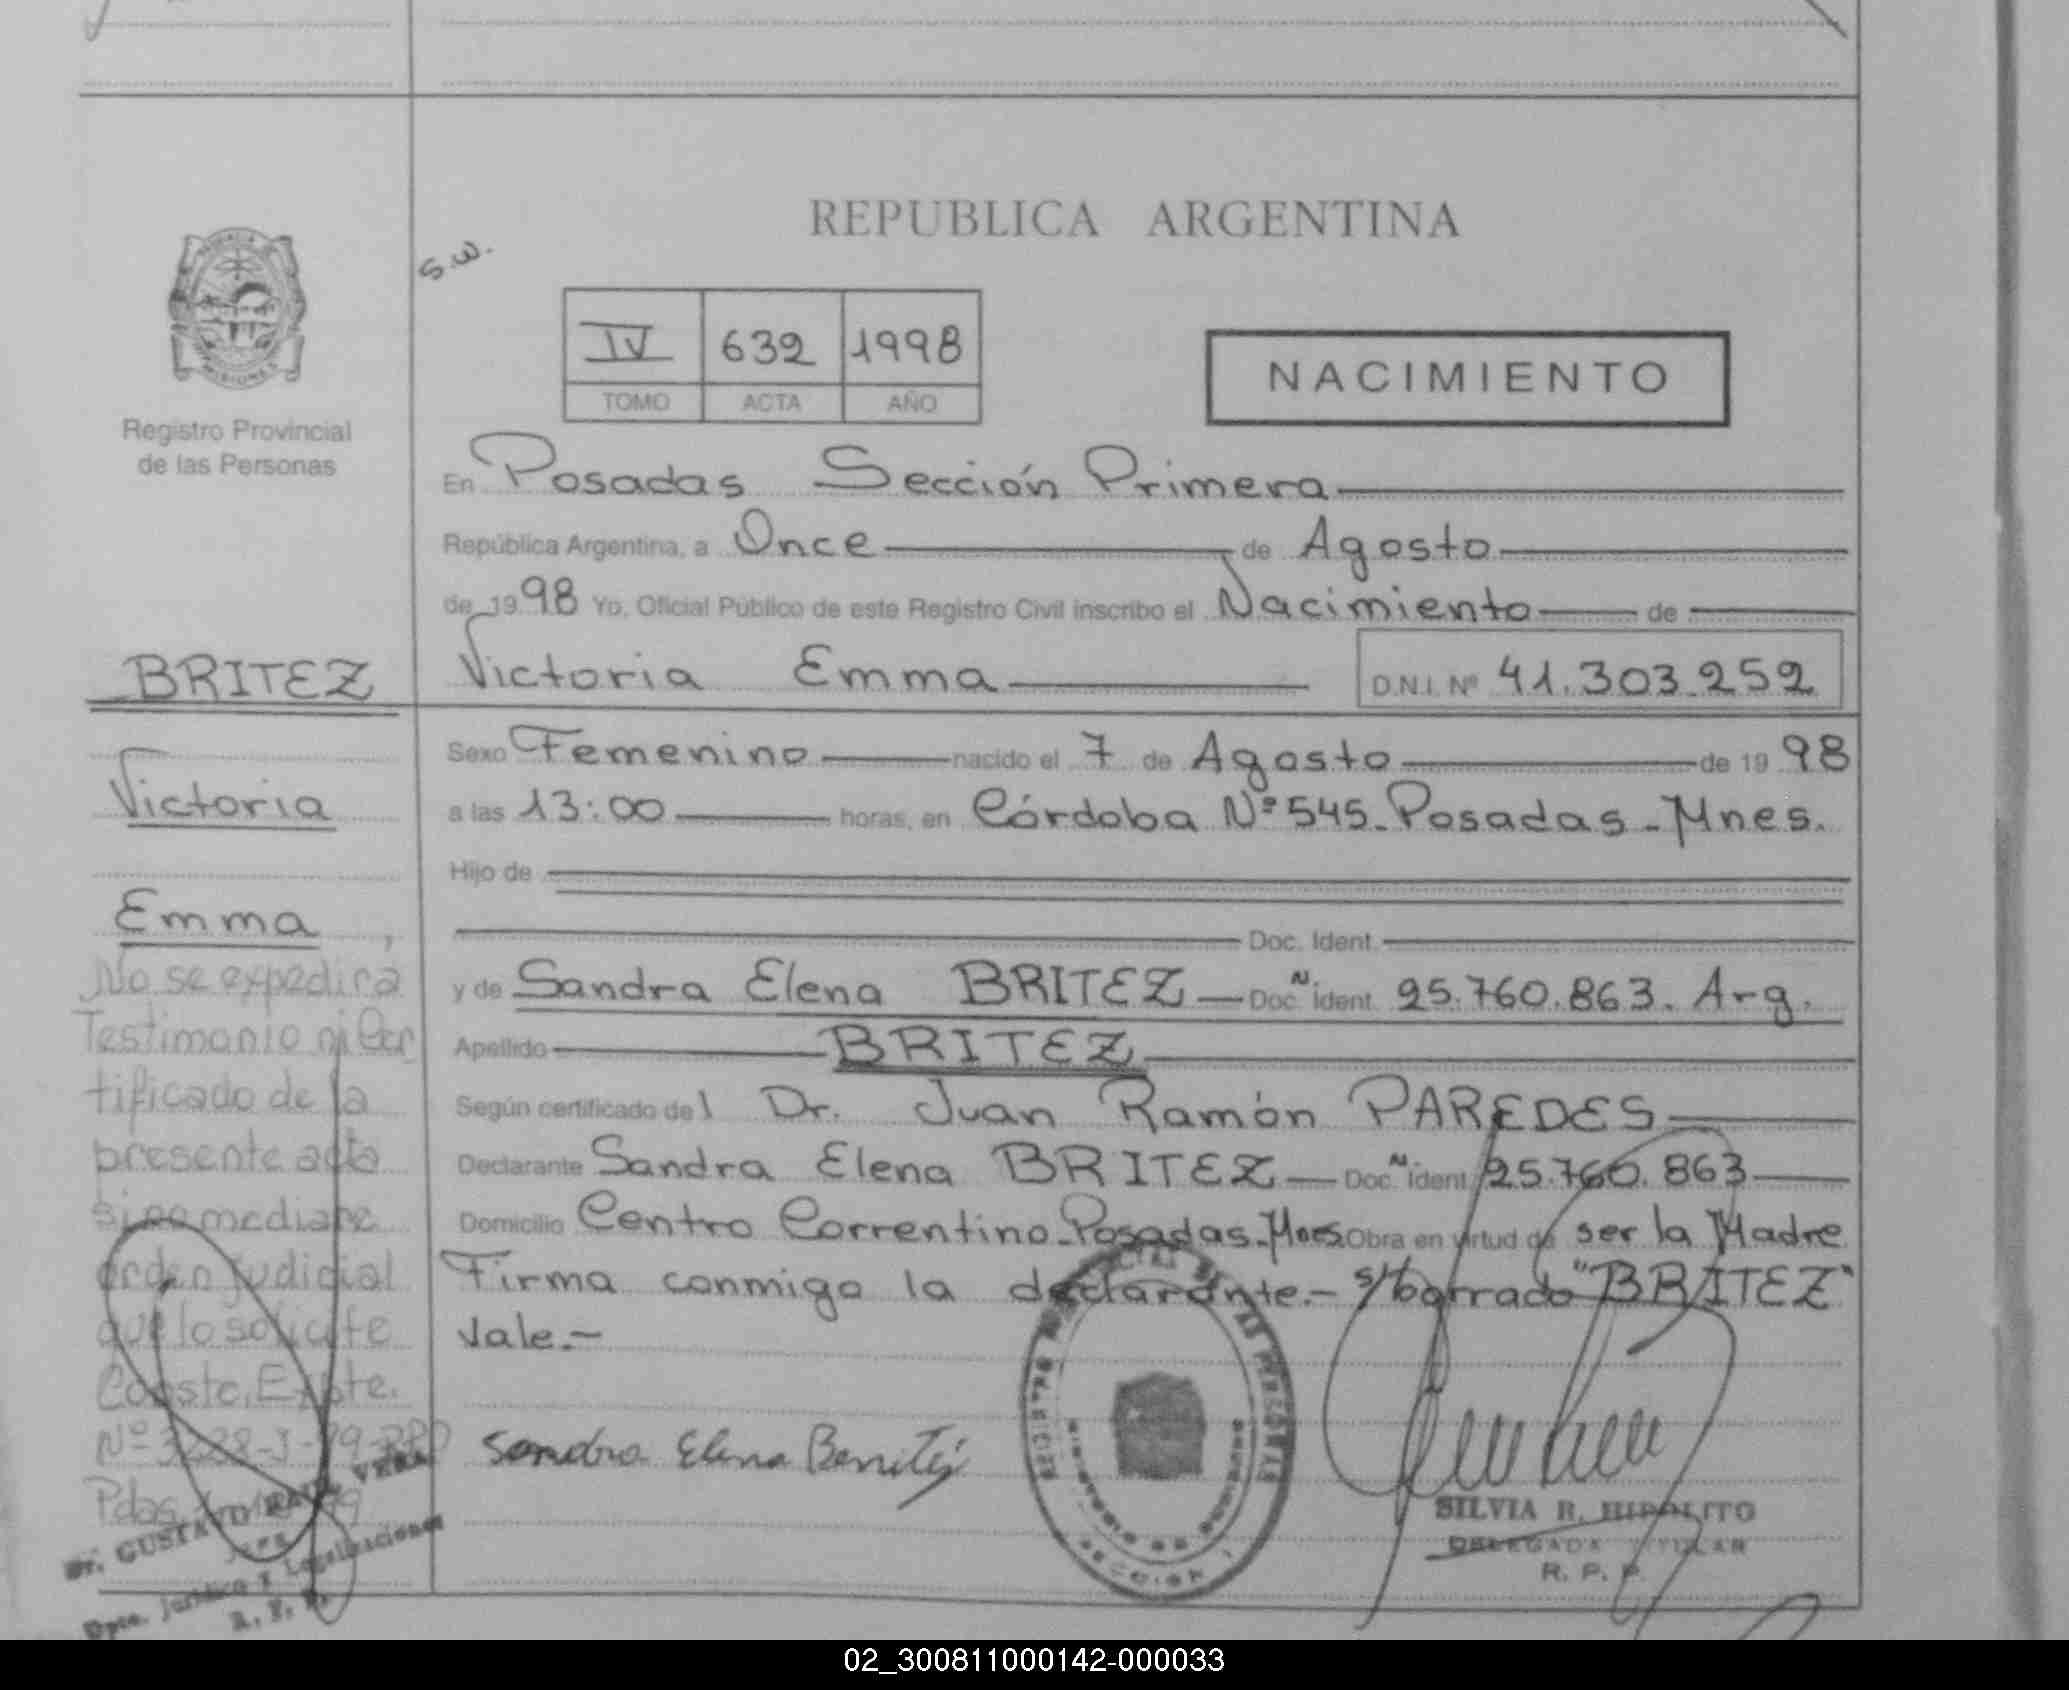 REPUBLICA ARGENTINA
s.w.
MISIONES
Registro Provincial
de las Personas
IV 632 1998
TOMO ACTA AÑO
NACIMIENTO
En Posadas Sección Primera
República Argentina, a Once de Agosto
de 1998 Yo, Oficial Público de este Registro Civil inscribo el Nacimiento de
Victoria Emma D.N.I. Nº 41.303.252
Sexo Femenino nacido el 7 de Agosto de 1998
a las 13:00 horas, en Córdoba Nº 545 - Posadas - Mnes.
Hijo de
Doc. Ident.
y de Sandra Elena BRITEZ Doc. Ident. Nº 25.760.863. Arg.
Apellido BRITEZ
Según certificado del Dr. Juan Ramón PAREDES
Declarante Sandra Elena BRITEZ Doc. Ident. Nº 25.760.863
Domicilio Centro Correntino - Posadas - Mnes. Obra en virtud de ser la Madre
Firma conmigo la declarante.- s/borrado "BRITEZ"
Vale.-
BRITEZ
Victoria
Emma
No se expedirá
Testimonio ni Cer
tificado de la
presente acta
si no mediare
orden judicial
que lo solicite
Expte.
Nº
Pdas.
Dr. GUSTAVO RAUL VERA
JEFE
Dpto. Jurídico y Legalizaciones
R. P. P.
Sandra Elena
SILVIA R. HIPOLITO
DELEGADA TITULAR
R. P. P.
02_300811000142-000033